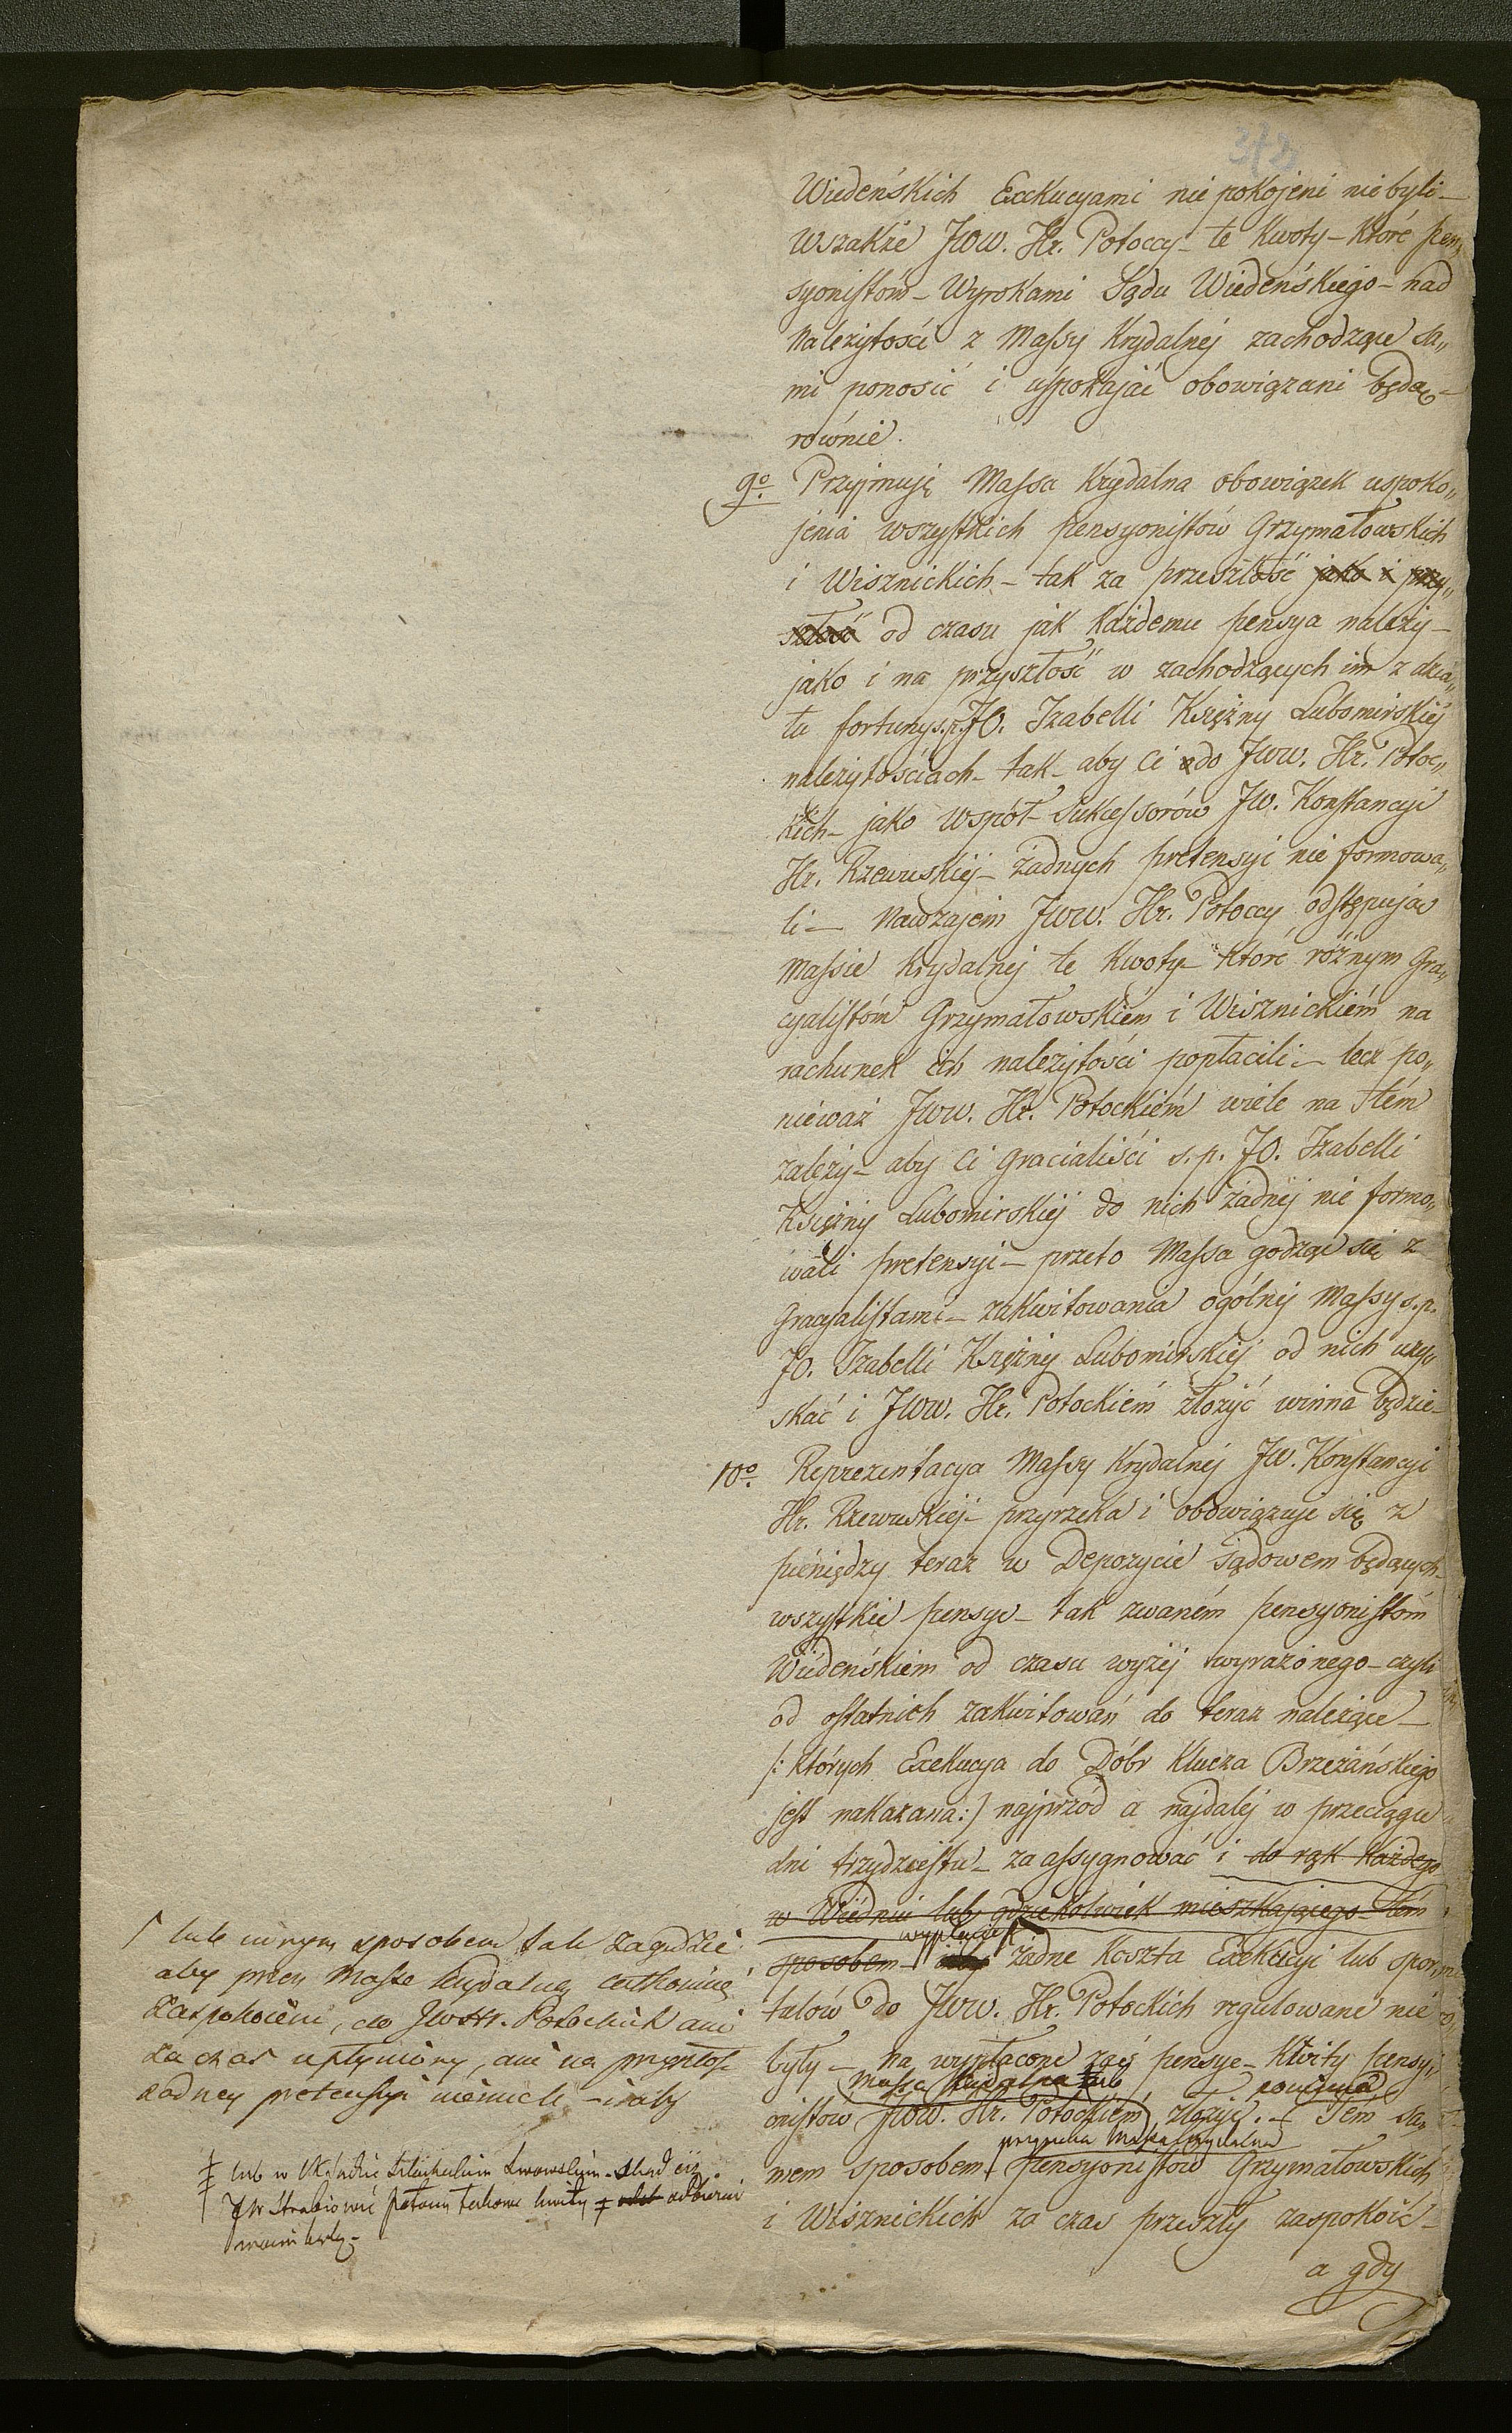 Wiedeńskich Exekucyami nie pokojeni nie byli —
wszakże JWW. Hr. Potoccy — te kwoty — które pen„
syonistów — Wyrokami Sądu Wiedeńskiego — nad
należytość z Massy Krydalnéj zachodzące sa„
mi ponosić i uspokajać obowiązani będą —
równie.
9o. Przyjmuję Massa Krydalna obowiązek uspoko„
jenia wszystkich pensyonistów Grzymałowskich
i Wisznickich — tak za przeszłość jako i przy„
szłość od czasu jak każdemu pensya należy —
jako i na przyszłość w zachodzących im z dzia„
łu fortuny s.p. JO. Izabelli Księżny Lubomirskiéj
należytościach — tak — aby ci do JWW. Hr. Potoc„
kich — jako Wspól-Sukcessorów JW. Konstancyi
Hr. Rzewuskiéj — żadnych pretensyi nie formowa„
li — Nawzajem JWW. Hr. Potoccy odstępując
Massie Krydalnéj te Kwoty — które różnym Gra„
cyalistóm Grzymałowskiém i Wisznickiém na
rachunek ich należytości popłacili — lecz po„
nieważ JWW. Hr. Potockiém wiele na tém
zależy — aby ci Gracialiści s.p. JO. Izabelli
Księżny Lubomirskiéj do nich żadnéj nie formo„
wali pretensyi — przeto Massa godząc się z
Gracyalistami — zakwitowania ogólnéj Massy s.p.
JO. Izabelli Księżny Lubomirskiéj od nich uzy„
skać i JWW. Hr. Potockiém złożyć winna będzie —
10o. Reprezentacya Massy Krydalnéj JW. Konstancyi
Hr. Rzewuskiéj — przyrzeka i obowiązuje się z
pieniędzy teraz w Depozycie sądowem będących —
wszystkie pensye — tak zwaném pensyonistóm
Wiedeńskiem od czasu wyżéj wyrażonego — czyli
od ostatnich zakwitowań do teraz należące —
/: których Exekucya do Dóbr Klucza Brzeżańskiego
jest nakazana :/ najprzód a najdaléj w przeciągu
dni trzydziestu — zaassygnować i do rąk każdego
w Wiedniu lub gdziekolwiek mieszkającego — tém
wypłacić
sposobem — aby żadne Koszta Exekucyi lub spor„
tulów do JWW. Hr. Potockich regulowane nie
były — na wypłacone zaś pensye — Kwity pensy„
Massa Krydalna powinna
onistów JWW. Hr. Potockiém złożyć. — Tém sa„
przyrzeka Massa Krydalna
mem sposobem pensyonistów Grzymałowskich
i Wisznickich za czas przeszły zaspokoić —
a gdy
/ lub innym sposobem tak zagodzić
aby przez Massę Krydalną całkowicie
zaspokoieni, do JWW. Potockich ani
za czas upłyniony, ani na przyszłość
żadney pretensyi nie mieli
‡ lub w Składzie Lwowskim
JW potem takowe kwity odbierać